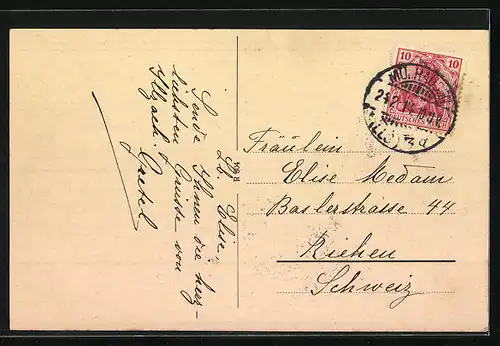 Lb. Elise.
Sende Ihnen die herz-
lichsten Grüsse von
Illzach.
Gretel
Fräulein
Elise Medam
Baslerstrasse 44
Riehen
Schweiz
10 10